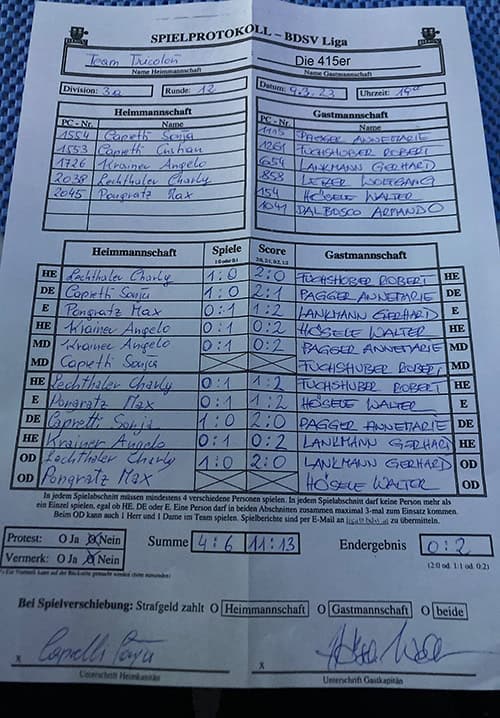 SPIELPROTOKOLL – BDSV Liga
Team Tricolor Die 415er
Name Heimmannschaft Name Gastmannschaft
Division: 3a Runde: 12 Datum: 9.3.23 Uhrzeit: 19
Heimmannschaft Gastmannschaft
PC - Nr. Name PC - Nr. Name
1554 Capretti Sonja PAGGER ANNEMARIE
1553 Capretti 1261 FUCHSHUBER ROBERT
1726 Krainer Angelo 654 LANKMANN GERHARD
2038 Lechthaler Charly 858 WOLFGANG
2045 Pongratz Max 154 HÖSELE WALTER
1041 DALBOSCO ARMANDO
Heimmannschaft Spiele Score Gastmannschaft
1:0 oder 0:1 2:0, 2:1, 0:2, 1:2
HE Lechthaler Charly 1:0 2:0 FUCHSHUBER ROBERT HE
DE Capretti Sonja 1:0 2:1 PAGGER ANNEMARIE DE
E Pongratz Max 0:1 1:2 LANKMANN GERHARD E
HE Krainer Angelo 0:1 0:2 HÖSELE WALTER HE
MD Krainer Angelo 0:1 0:2 PAGGER ANNEMARIE MD
MD Capretti Sonja FUCHSHUBER ROBERT MD
HE Lechthaler Charly 0:1 1:2 FUCHSHUBER ROBERT HE
E Pongratz Max 0:1 1:2 HÖSELE WALTER E
DE Capretti Sonja 1:0 2:0 PAGGER ANNEMARIE DE
HE Krainer Angelo 0:1 0:2 LANKMANN GERHARD HE
OD Lechthaler Charly 1:0 2:0 LANKMANN GERHARD OD
OD Pongratz Max HÖSELE WALTER OD
In jedem Spielabschnitt müssen mindestens 4 verschiedene Personen spielen. In jedem Spielabschnitt darf keine Person mehr als
ein Einzel spielen, egal ob HE, DE oder E. Eine Person darf in beiden Abschnitten zusammen maximal 3-mal zum Einsatz kommen.
Beim OD kann auch 1 Herr und 1 Dame im Team spielen. Spielberichte sind per E-Mail an liga@bdsv.at zu übermitteln.
Protest: O Ja O Nein Summe 4:6 11:13 Endergebnis 0:2
Vermerk: O Ja O Nein (2:0 od. 1:1 od. 0:2)
Bei Spielverschiebung: Strafgeld zahlt O Heimmannschaft O Gastmannschaft O beide
x x
Unterschrift Heimkapitän Unterschrift Gastkapitän